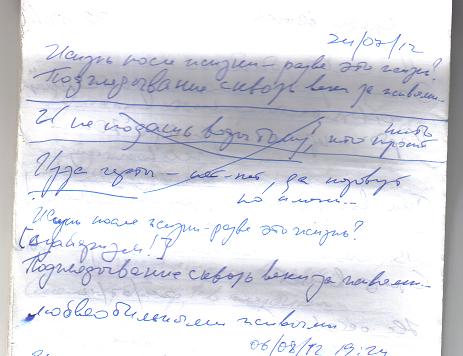 24/07/12
Жизнь после жизни – разве это жизнь?
Подглядывание сквозь веки за живыми...
И не подашь воды тому, кто просит пить
Из-за черты – нет-нет, да позовут
по имени...
Жизнь после жизни – разве это жизнь?
Подглядывание сквозь веки за живыми...
любвеобильными живыми
06/08/12 19:24